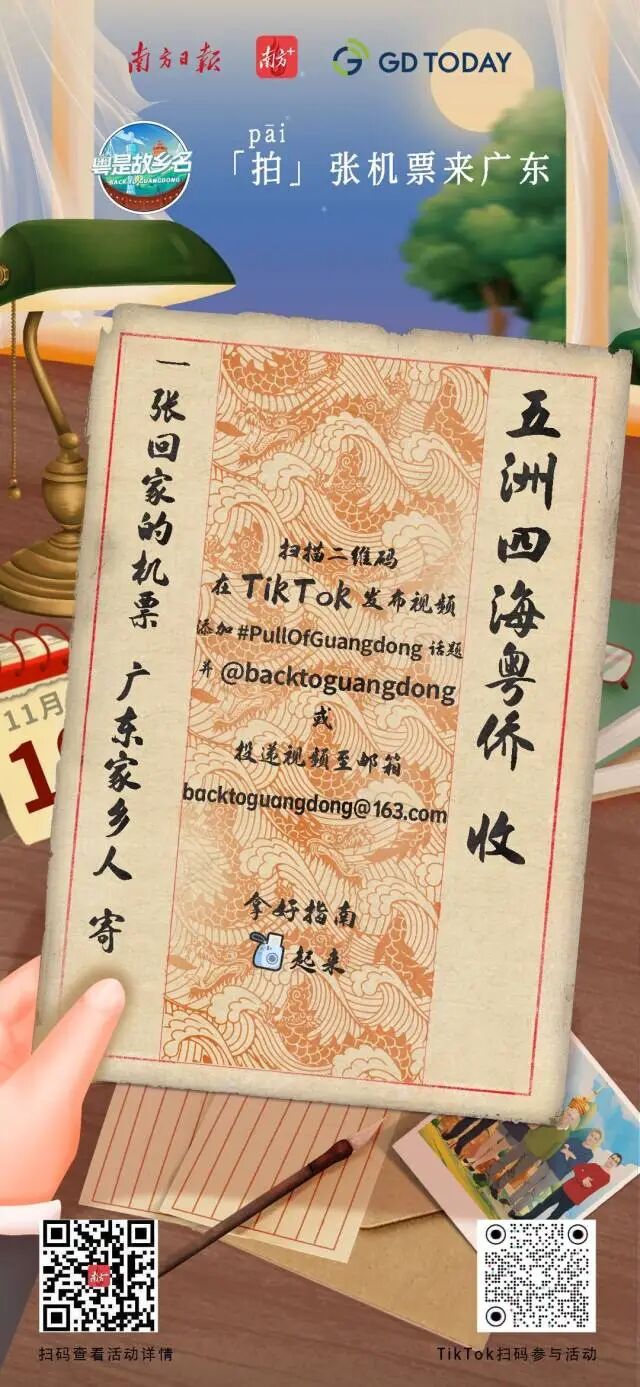 南方日报
南方+
GD TODAY
粤是故乡名
BACK TO GUANGDONG
pāi
「拍」张机票来广东
五洲四海粤侨 收
扫描二维码
在 TikTok 发布视频
添加 #PullOfGuangdong 话题
并 @backtoguangdong
或
投递视频至邮箱
backtoguangdong@163.com
拿好指南
起来
一张回家的机票 广东家乡人 寄
11月
南方+
扫码查看活动详情
TikTok扫码参与活动